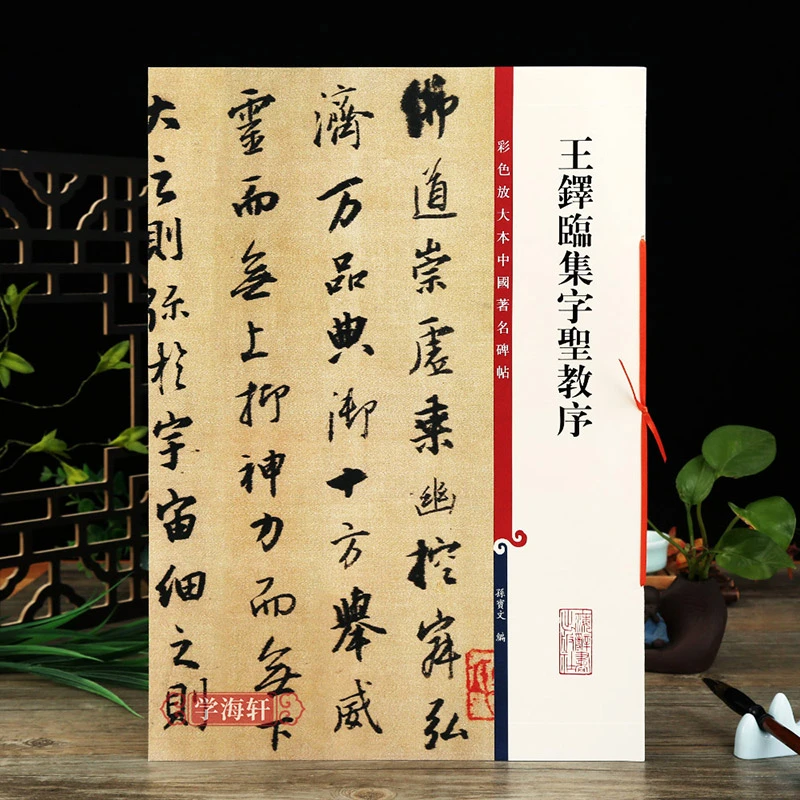 王鐸臨集字聖教序
彩色放大本中國著名碑帖
孫寶文 編
佛道崇虛乗幽控寂弘
濟万品典御十方舉威
靈而無上抑神力而無下
大之則弥於宇宙細之則
学海轩